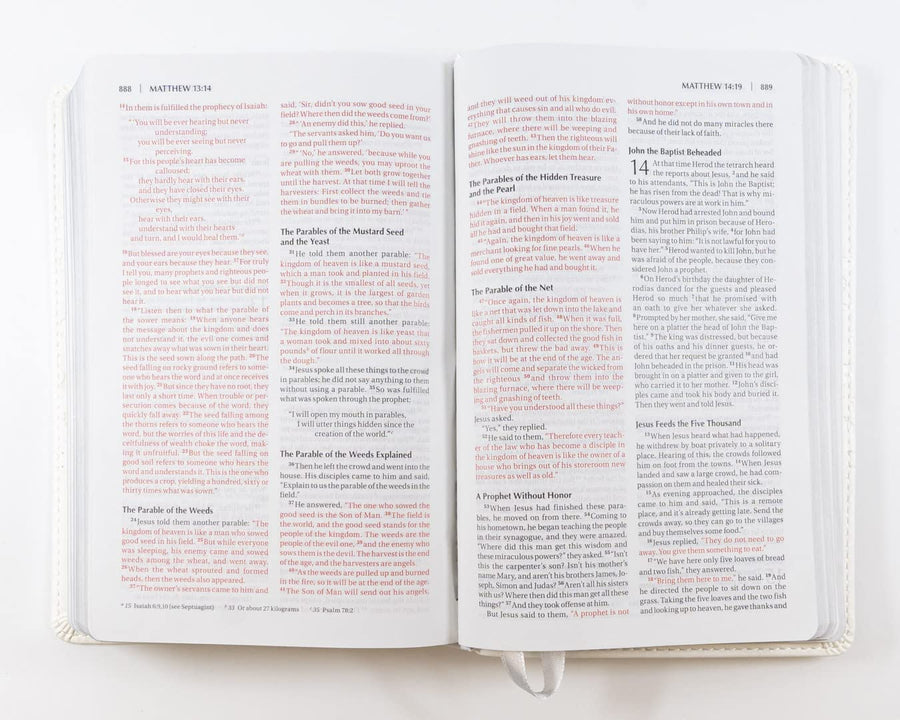 888 | MATTHEW 13:14
14In them is fulfilled the prophecy of Isaiah:
"'You will be ever hearing but never
understanding;
you will be ever seeing but never
perceiving.
15For this people's heart has become
calloused;
they hardly hear with their ears,
and they have closed their eyes.
Otherwise they might see with their
eyes,
hear with their ears,
understand with their hearts
and turn, and I would heal them.'a
16But blessed are your eyes because they see,
and your ears because they hear. 17For truly
I tell you, many prophets and righteous peo-
ple longed to see what you see but did not
see it, and to hear what you hear but did not
hear it.
18"Listen then to what the parable of
the sower means: 19When anyone hears
the message about the kingdom and does
not understand it, the evil one comes and
snatches away what was sown in their heart.
This is the seed sown along the path. 20The
seed falling on rocky ground refers to some-
one who hears the word and at once receives
it with joy. 21But since they have no root, they
last only a short time. When trouble or per-
secution comes because of the word, they
quickly fall away. 22The seed falling among
the thorns refers to someone who hears the
word, but the worries of this life and the de-
ceitfulness of wealth choke the word, mak-
ing it unfruitful. 23But the seed falling on
good soil refers to someone who hears the
word and understands it. This is the one who
produces a crop, yielding a hundred, sixty or
thirty times what was sown."
The Parable of the Weeds
24Jesus told them another parable: "The
kingdom of heaven is like a man who sowed
good seed in his field. 25But while everyone
was sleeping, his enemy came and sowed
weeds among the wheat, and went away.
26When the wheat sprouted and formed
heads, then the weeds also appeared.
27"The owner's servants came to him and
said, 'Sir, didn't you sow good seed in your
field? Where then did the weeds come from?'
28"'An enemy did this,' he replied.
"The servants asked him, 'Do you want us
to go and pull them up?'
29"'No,' he answered, 'because while you
are pulling the weeds, you may uproot the
wheat with them. 30Let both grow together
until the harvest. At that time I will tell the
harvesters: First collect the weeds and tie
them in bundles to be burned; then gather
the wheat and bring it into my barn.'"
The Parables of the Mustard Seed
and the Yeast
31He told them another parable: "The
kingdom of heaven is like a mustard seed,
which a man took and planted in his field.
32Though it is the smallest of all seeds, yet
when it grows, it is the largest of garden
plants and becomes a tree, so that the birds
come and perch in its branches."
33He told them still another parable:
"The kingdom of heaven is like yeast that
a woman took and mixed into about sixty
poundsb of flour until it worked all through
the dough."
34Jesus spoke all these things to the crowd
in parables; he did not say anything to them
without using a parable. 35So was fulfilled
what was spoken through the prophet:
"I will open my mouth in parables,
I will utter things hidden since the
creation of the world."c
The Parable of the Weeds Explained
36Then he left the crowd and went into the
house. His disciples came to him and said,
"Explain to us the parable of the weeds in the
field."
37He answered, "The one who sowed the
good seed is the Son of Man. 38The field is
the world, and the good seed stands for the
people of the kingdom. The weeds are the
people of the evil one, 39and the enemy who
sows them is the devil. The harvest is the end
of the age, and the harvesters are angels.
40"As the weeds are pulled up and burned
in the fire, so it will be at the end of the age.
41The Son of Man will send out his angels,
a 15 Isaiah 6:9,10 (see Septuagint) b 33 Or about 27 kilograms c 35 Psalm 78:2
MATTHEW 14:19 | 889
and they will weed out of his kingdom ev-
erything that causes sin and all who do evil.
42They will throw them into the blazing
furnace, where there will be weeping and
gnashing of teeth. 43Then the righteous will
shine like the sun in the kingdom of their Fa-
ther. Whoever has ears, let them hear.
The Parables of the Hidden Treasure
and the Pearl
44"The kingdom of heaven is like treasure
hidden in a field. When a man found it, he
hid it again, and then in his joy went and sold
all he had and bought that field.
45"Again, the kingdom of heaven is like a
merchant looking for fine pearls. 46When he
found one of great value, he went away and
sold everything he had and bought it.
The Parable of the Net
47"Once again, the kingdom of heaven is
like a net that was let down into the lake and
caught all kinds of fish. 48When it was full,
the fishermen pulled it up on the shore. Then
they sat down and collected the good fish in
baskets, but threw the bad away. 49This is
how it will be at the end of the age. The an-
gels will come and separate the wicked from
the righteous 50and throw them into the
blazing furnace, where there will be weep-
ing and gnashing of teeth.
51"Have you understood all these things?"
Jesus asked.
"Yes," they replied.
52He said to them, "Therefore every teach-
er of the law who has become a disciple in
the kingdom of heaven is like the owner of a
house who brings out of his storeroom new
treasures as well as old."
A Prophet Without Honor
53When Jesus had finished these para-
bles, he moved on from there. 54Coming to
his hometown, he began teaching the people
in their synagogue, and they were amazed.
"Where did this man get this wisdom and
these miraculous powers?" they asked. 55"Isn't
this the carpenter's son? Isn't his mother's
name Mary, and aren't his brothers James, Jo-
seph, Simon and Judas? 56Aren't all his sisters
with us? Where then did this man get all these
things?" 57And they took offense at him.
But Jesus said to them, "A prophet is not
without honor except in his own town and in
his own home."
58And he did not do many miracles there
because of their lack of faith.
John the Baptist Beheaded
14 At that time Herod the tetrarch heard
the reports about Jesus, 2and he said
to his attendants, "This is John the Baptist;
he has risen from the dead! That is why mi-
raculous powers are at work in him."
3Now Herod had arrested John and bound
him and put him in prison because of Hero-
dias, his brother Philip's wife, 4for John had
been saying to him: "It is not lawful for you to
have her." 5Herod wanted to kill John, but he
was afraid of the people, because they con-
sidered John a prophet.
6On Herod's birthday the daughter of He-
rodias danced for the guests and pleased
Herod so much 7that he promised with
an oath to give her whatever she asked.
8Prompted by her mother, she said, "Give me
here on a platter the head of John the Bap-
tist." 9The king was distressed, but because
of his oaths and his dinner guests, he or-
dered that her request be granted 10and had
John beheaded in the prison. 11His head was
brought in on a platter and given to the girl,
who carried it to her mother. 12John's disci-
ples came and took his body and buried it.
Then they went and told Jesus.
Jesus Feeds the Five Thousand
13When Jesus heard what had happened,
he withdrew by boat privately to a solitary
place. Hearing of this, the crowds followed
him on foot from the towns. 14When Jesus
landed and saw a large crowd, he had com-
passion on them and healed their sick.
15As evening approached, the disciples
came to him and said, "This is a remote
place, and it's already getting late. Send the
crowds away, so they can go to the villages
and buy themselves some food."
16Jesus replied, "They do not need to go
away. You give them something to eat."
17"We have here only five loaves of bread
and two fish," they answered.
18"Bring them here to me," he said. 19And
he directed the people to sit down on the
grass. Taking the five loaves and the two fish
and looking up to heaven, he gave thanks and